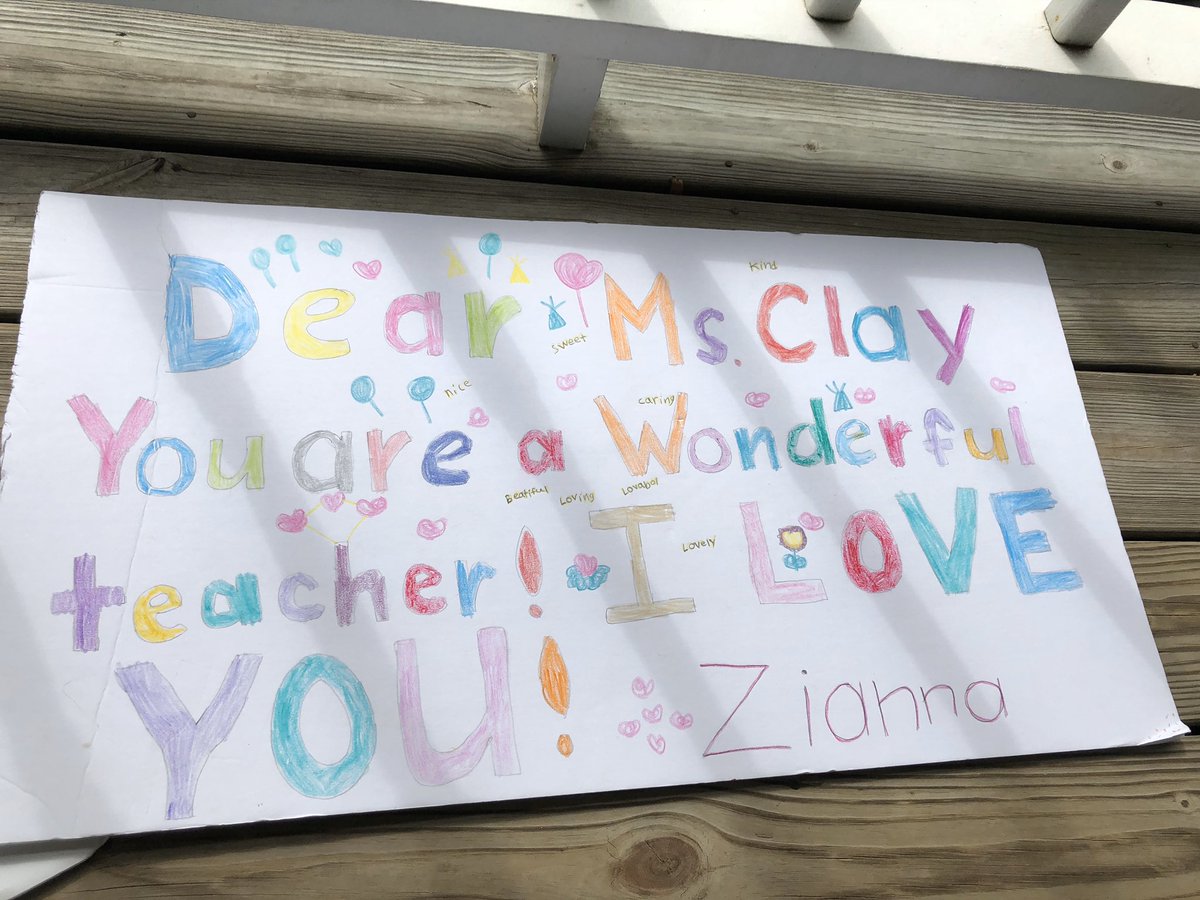 Kind
Dear Ms. Clay
sweet
nice
caring
You are a Wonderful
Beatiful Loving Lovabol
Lovely
teacher! I LOVE
YOU! Zianna